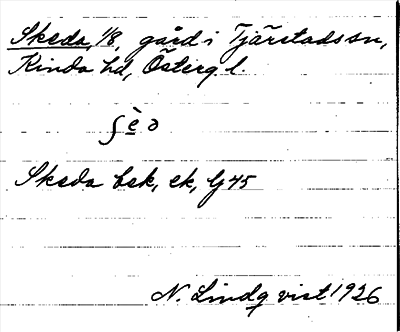 Skeda, 1/8, gård i Tjärstads sn,
Kinda hd, Österg. l.
ʃè̠ ə
Skeda bsk, ek, Gj 45
N. Lindqvist 1926